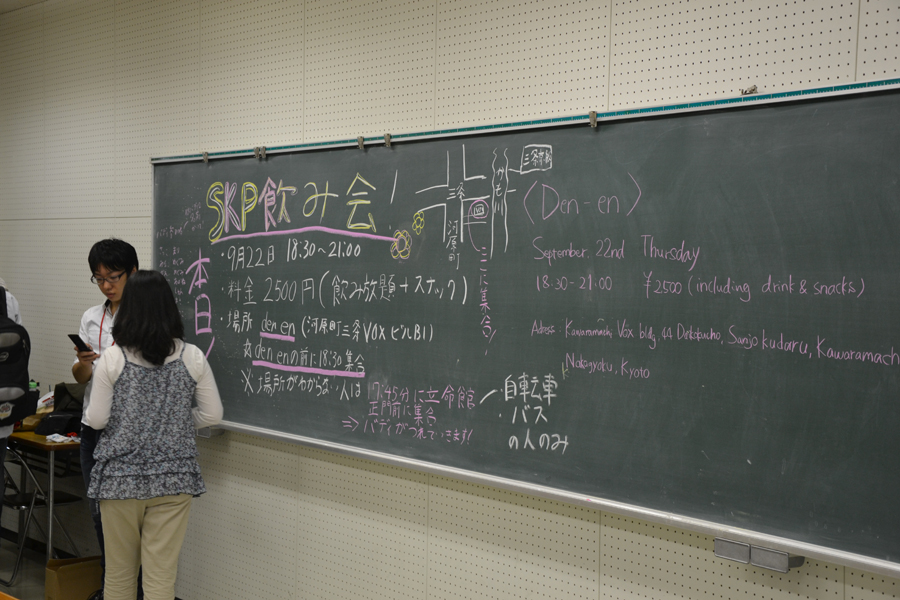 SKP飲み会!
本日!
・9月22日 18:30〜21:00
・料金 2500円(飲み放題+スナック)
・場所 den en (河原町三条VOXビルB1)
den enの前に18:30集合
※場所がわからない人は
17:45分に立命館
正門前に集合
⇒バディがつれていきます!
・自転車
・バス
の人のみ
三条
河原町
かも川
三条京阪
ここに集合!
〈Den-en〉
September 22nd Thursday
18:30-21:00 ¥2500 (including drink & snacks)
Kawaramachi Vox bldg. 44 Sanjokudaru, Kawaramach
Nakagyoku, Kyoto